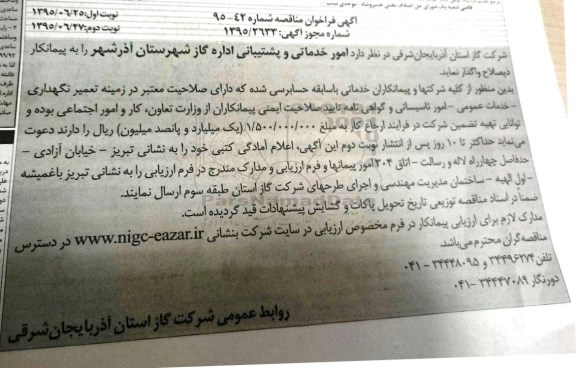 آگهی فراخوان مناقصه شماره ۴۲-۹۵
نوبت اول: ۱۳۹۵/۰۶/۲۵
شماره مجوز آگهی: ۱۳۹۵/۲۶۳۳
نوبت دوم: ۱۳۹۵/۰۶/۲۷
شرکت گاز استان آذربایجان‌شرقی در نظر دارد امور خدماتی و پشتیبانی اداره گاز شهرستان آذرشهر را به پیمانکار
ذیصلاح واگذار نماید.
بدین منظور از کلیه شرکتها و پیمانکاران خدماتی باسابقه حسابرسی شده که دارای صلاحیت معتبر در زمینه تعمیر نگهداری
- خدمات عمومی - امور تاسیساتی و گواهی نامه تایید صلاحیت ایمنی پیمانکاران از وزارت تعاون، کار و امور اجتماعی بوده و
توانایی تهیه تضمین شرکت در فرایند ارجاع کار به مبلغ ۱/۵۰۰/۰۰۰/۰۰۰ (یک میلیارد و پانصد میلیون) ریال را دارند دعوت
می‌نماید حداکثر تا ۱۰ روز پس از انتشار نوبت دوم این آگهی، اعلام آمادگی کتبی خود را به نشانی تبریز - خیابان آزادی -
حدفاصل چهارراه لاله و رسالت - اتاق ۳۰۴ امور پیمانها و فرم ارزیابی و مدارک مندرج در فرم ارزیابی را به نشانی تبریز باغمیشه
- اول الهیه - ساختمان مدیریت مهندسی و اجرای طرحهای شرکت گاز استان طبقه سوم ارسال نمایند.
ضمناً در اسناد مناقصه توزیعی تاریخ تحویل پاکات و گشایش پیشنهادات قید گردیده است.
مدارک لازم برای ارزیابی پیمانکار در فرم مخصوص ارزیابی در سایت شرکت بنشانی www.nigc-eazar.ir در دسترس
مناقصه‌گران محترم می‌باشد.
تلفن ۳۴۴۹۶۲۷۴ و ۳۴۴۴۸۰۹۵ - ۰۴۱
دورنگار ۳۴۴۴۷۰۸۹ - ۰۴۱
روابط عمومی شرکت گاز استان آذربایجان‌شرقی